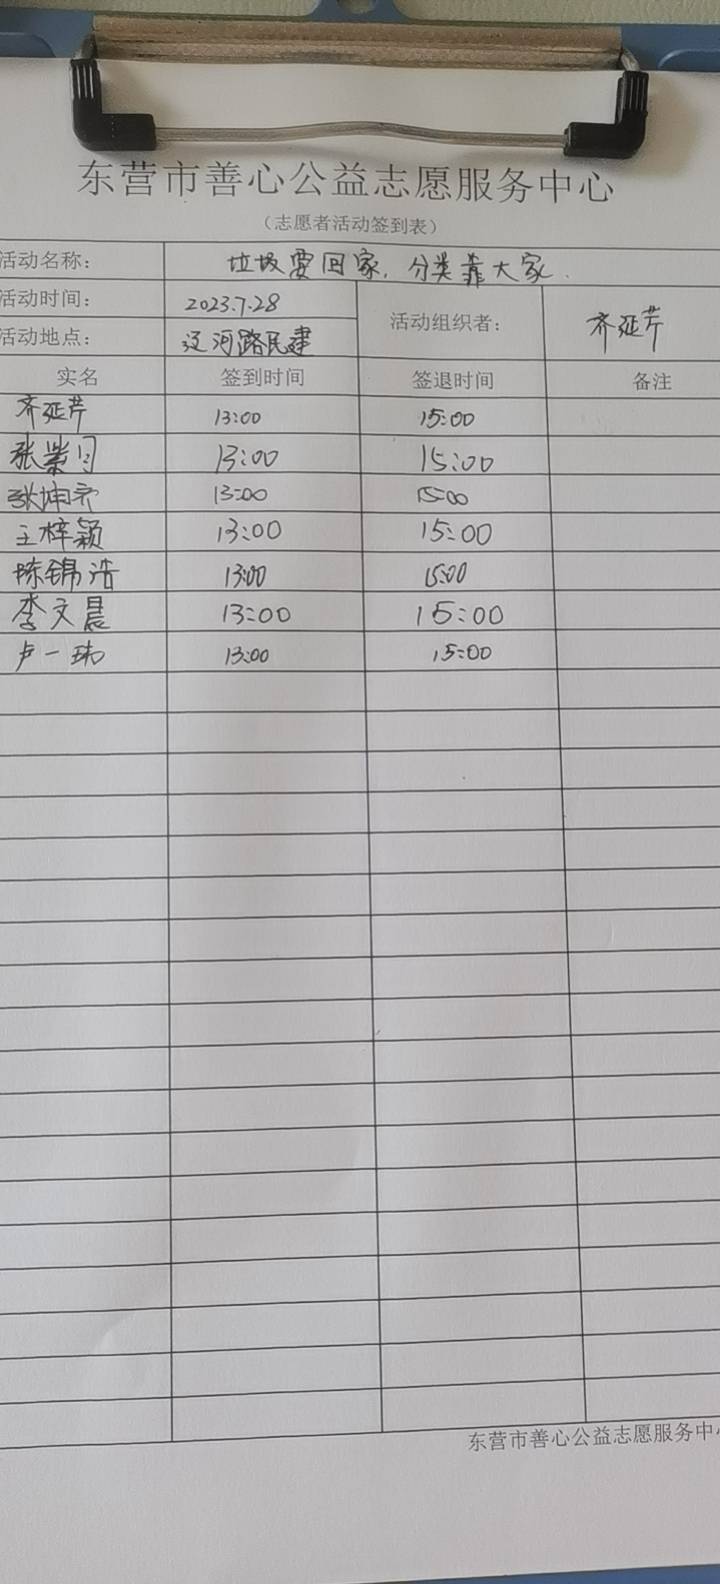 东营市善心公益志愿服务中心
（志愿者活动签到表）
活动名称： 垃圾要回家，分类靠大家.
活动时间： 2023.7.28 活动组织者： 齐延芹
活动地点： 辽河路民建
实名 签到时间 签退时间 备注
齐延芹 13:00 15:00
张 13:00 15:00
张坤齐 13:00 15:00
王梓颖 13:00 15:00
陈锦浩 13:00 15:00
李文晨 13:00 15:00
卢一玮 13:00 15:00
东营市善心公益志愿服务中心